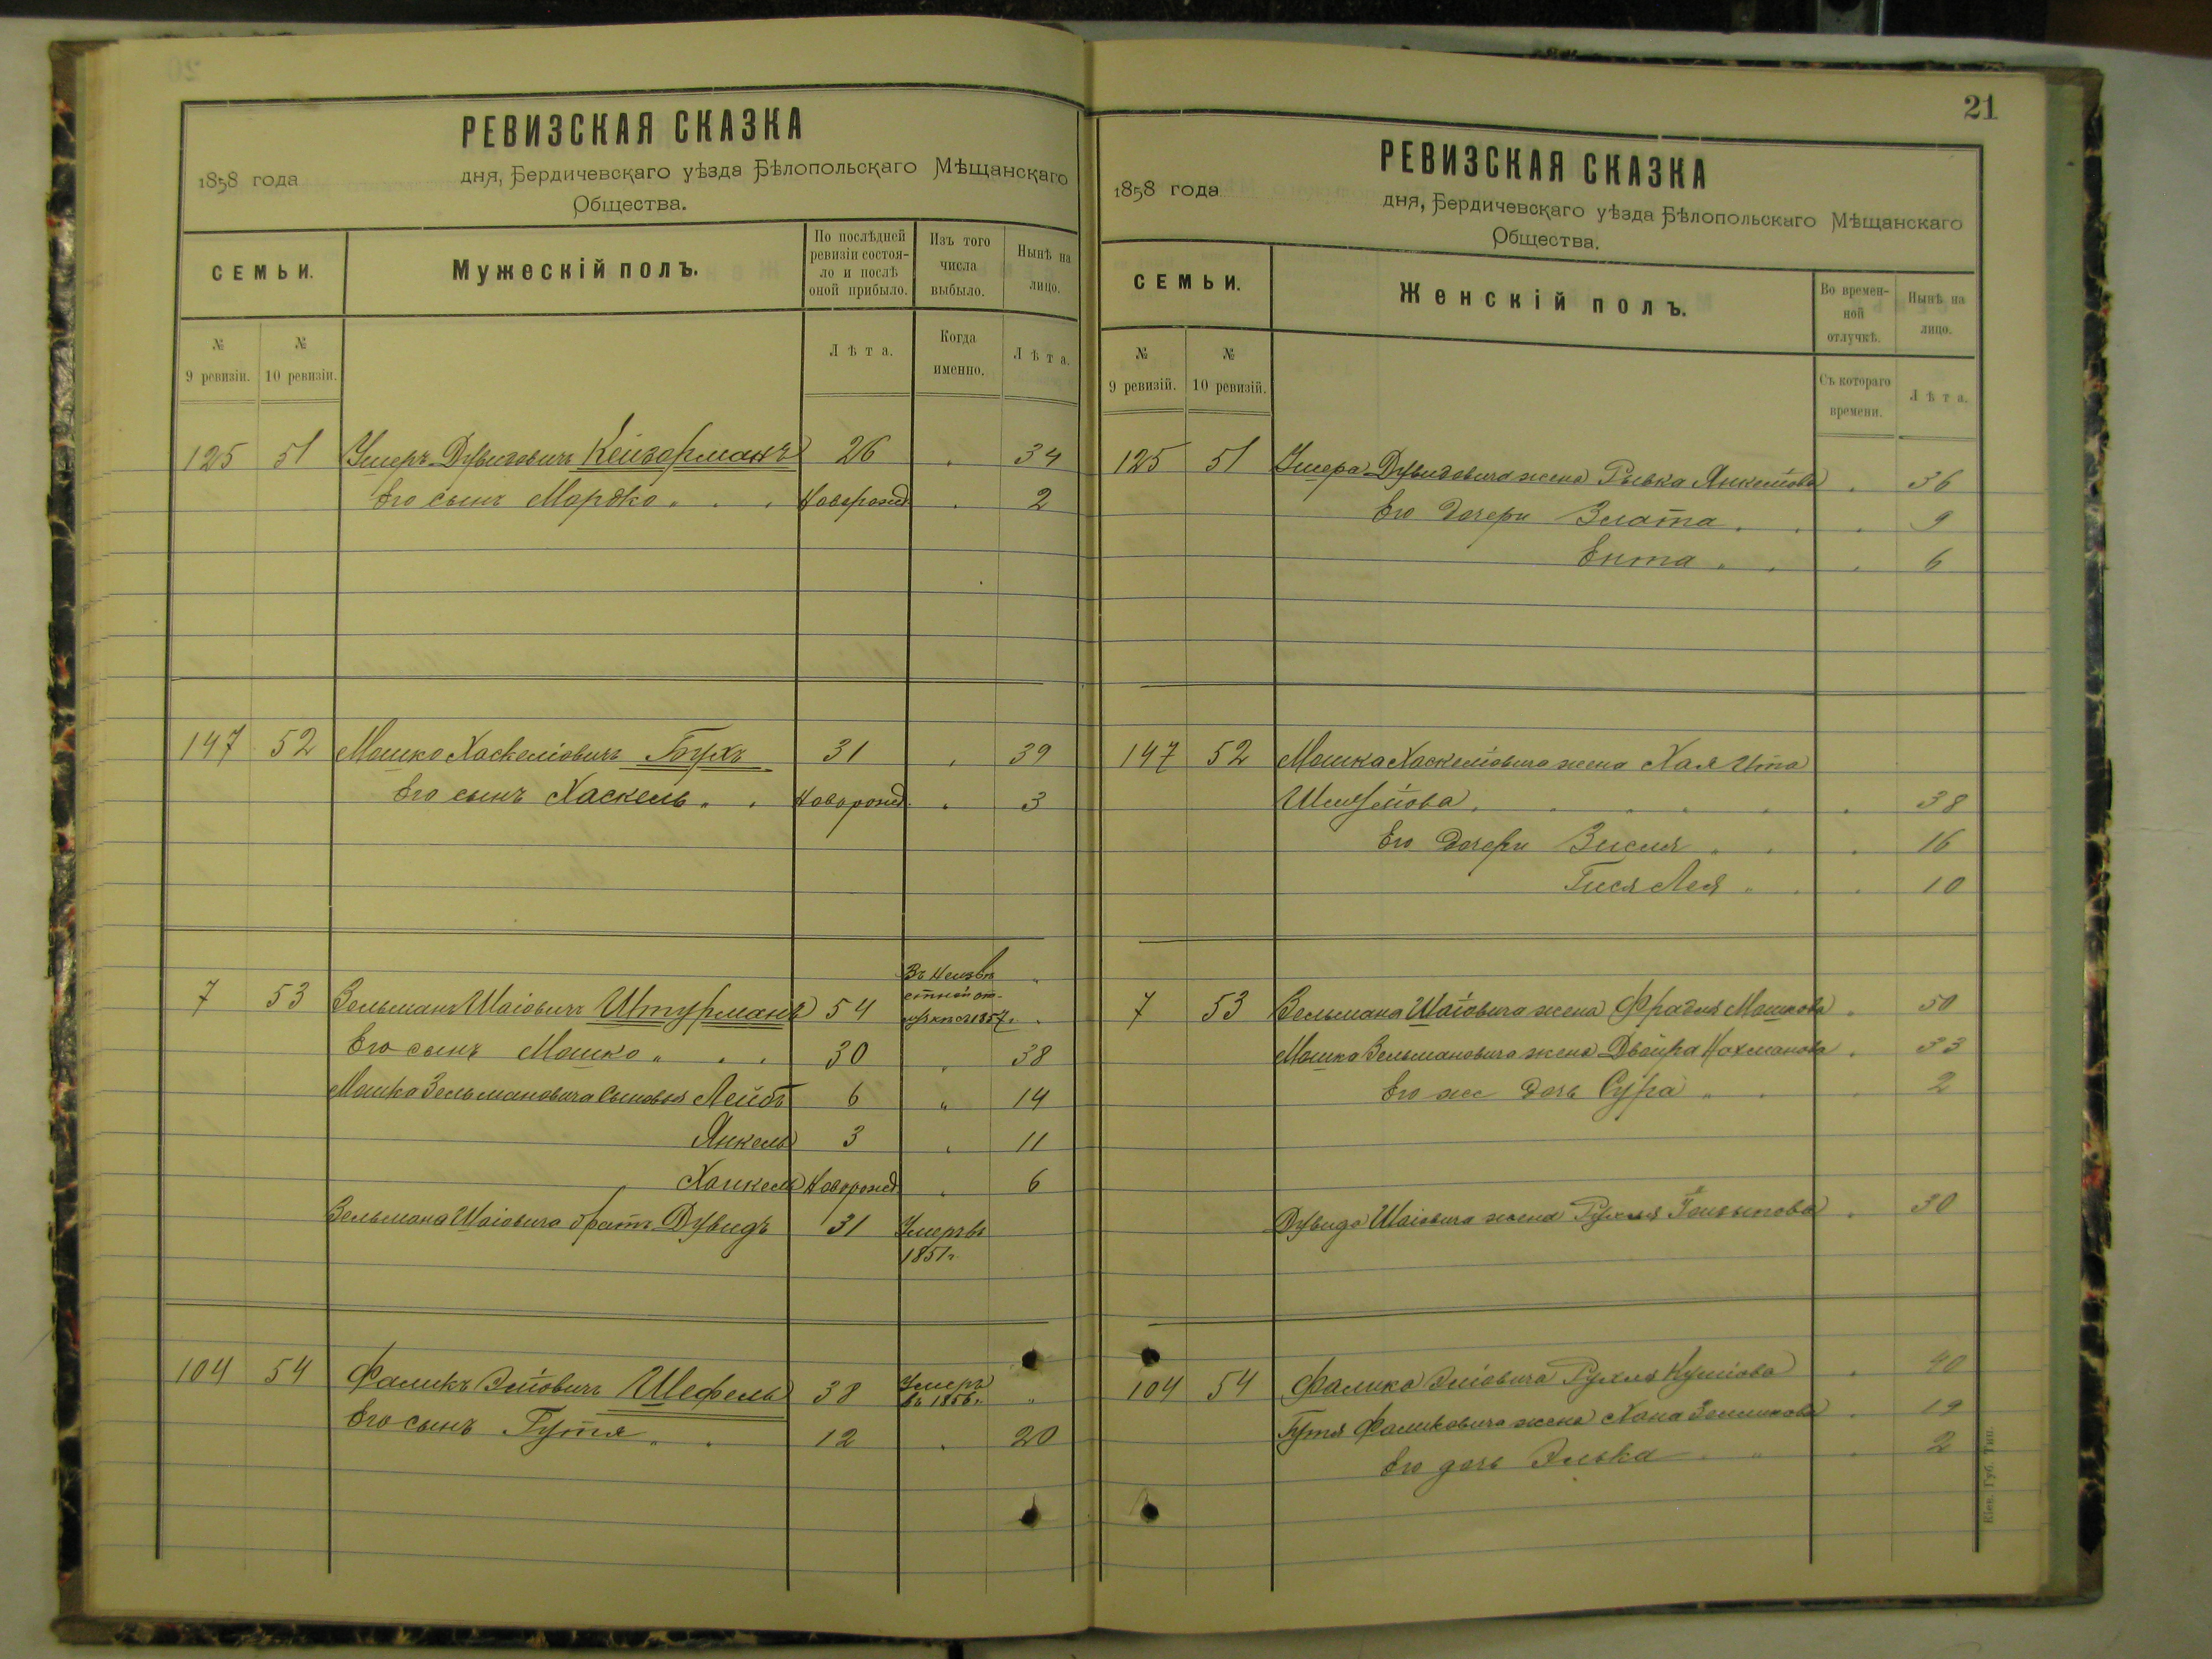 РЕВИЗСКАЯ СКАЗКА
1858 года дня, Бердичевскаго уѣзда Бѣлопольскаго Мѣщанскаго
Общества.
СЕМЬИ.
Мужескій полъ.
По послѣдней ревизіи состояло и послѣ оной прибыло.
Изъ того числа выбыло.
Нынѣ на лицо.
№ 9 ревизіи.
№ 10 ревизіи.
Лѣта.
Когда именно.
Лѣта.
125 51 Умеръ Дувидовичъ 26 34
Его сынъ Мордко Новорожд 2
147 52 Мошко Хаскеліовичъ Бухъ 31 39
Его сынъ Хаскель Новорожд. 3
Въ неизвѣ
стной от-
лучкѣ съ 1857 г.
7 53 Зельманъ Шаіовичъ Штурманъ 54
Его сынъ Мошко 30 38
Мошка Зельмановича сыновья Лейбъ 6 14
Янкель 3 11
Новорожд 6
Зельмана Шаіовича братъ Дувидъ 31 Умеръ въ
1851 г.
104 54 Фаликъ Эліовичъ Шефель 38 Умеръ
въ 1856 г.
Его сынъ Гутя 12 20
21
РЕВИЗСКАЯ СКАЗКА
1858 года дня, Бердичевскаго уѣзда Бѣлопольскаго Мѣщанскаго
Общества.
СЕМЬИ.
Женскій полъ.
Во временной отлучкѣ.
Нынѣ на лицо.
№ 9 ревизій.
№ 10 ревизій.
Съ котораго времени.
Лѣта.
125 51 Дувидовича жена Рывка Янкеліова 36
Его дочери Злата 9
Ента 6
147 52 Мошка Хаскеліовича жена Хая Ита
38
Его дочери Зисля 16
Гися Лея 10
7 53 Зельмана Шаіовича жена Фрадля Мошкова 50
Мошка Зельмановича жена Двойра Нахманова 33
Его же дочь Сура 2
Дувида Шаіовича жена Рухля 30
104 54 Фалика Эліовича Рухля 40
Гутя Фаликовича жена Хана 19
Его дочь Элька 2
Кіев. Губ. Тип.